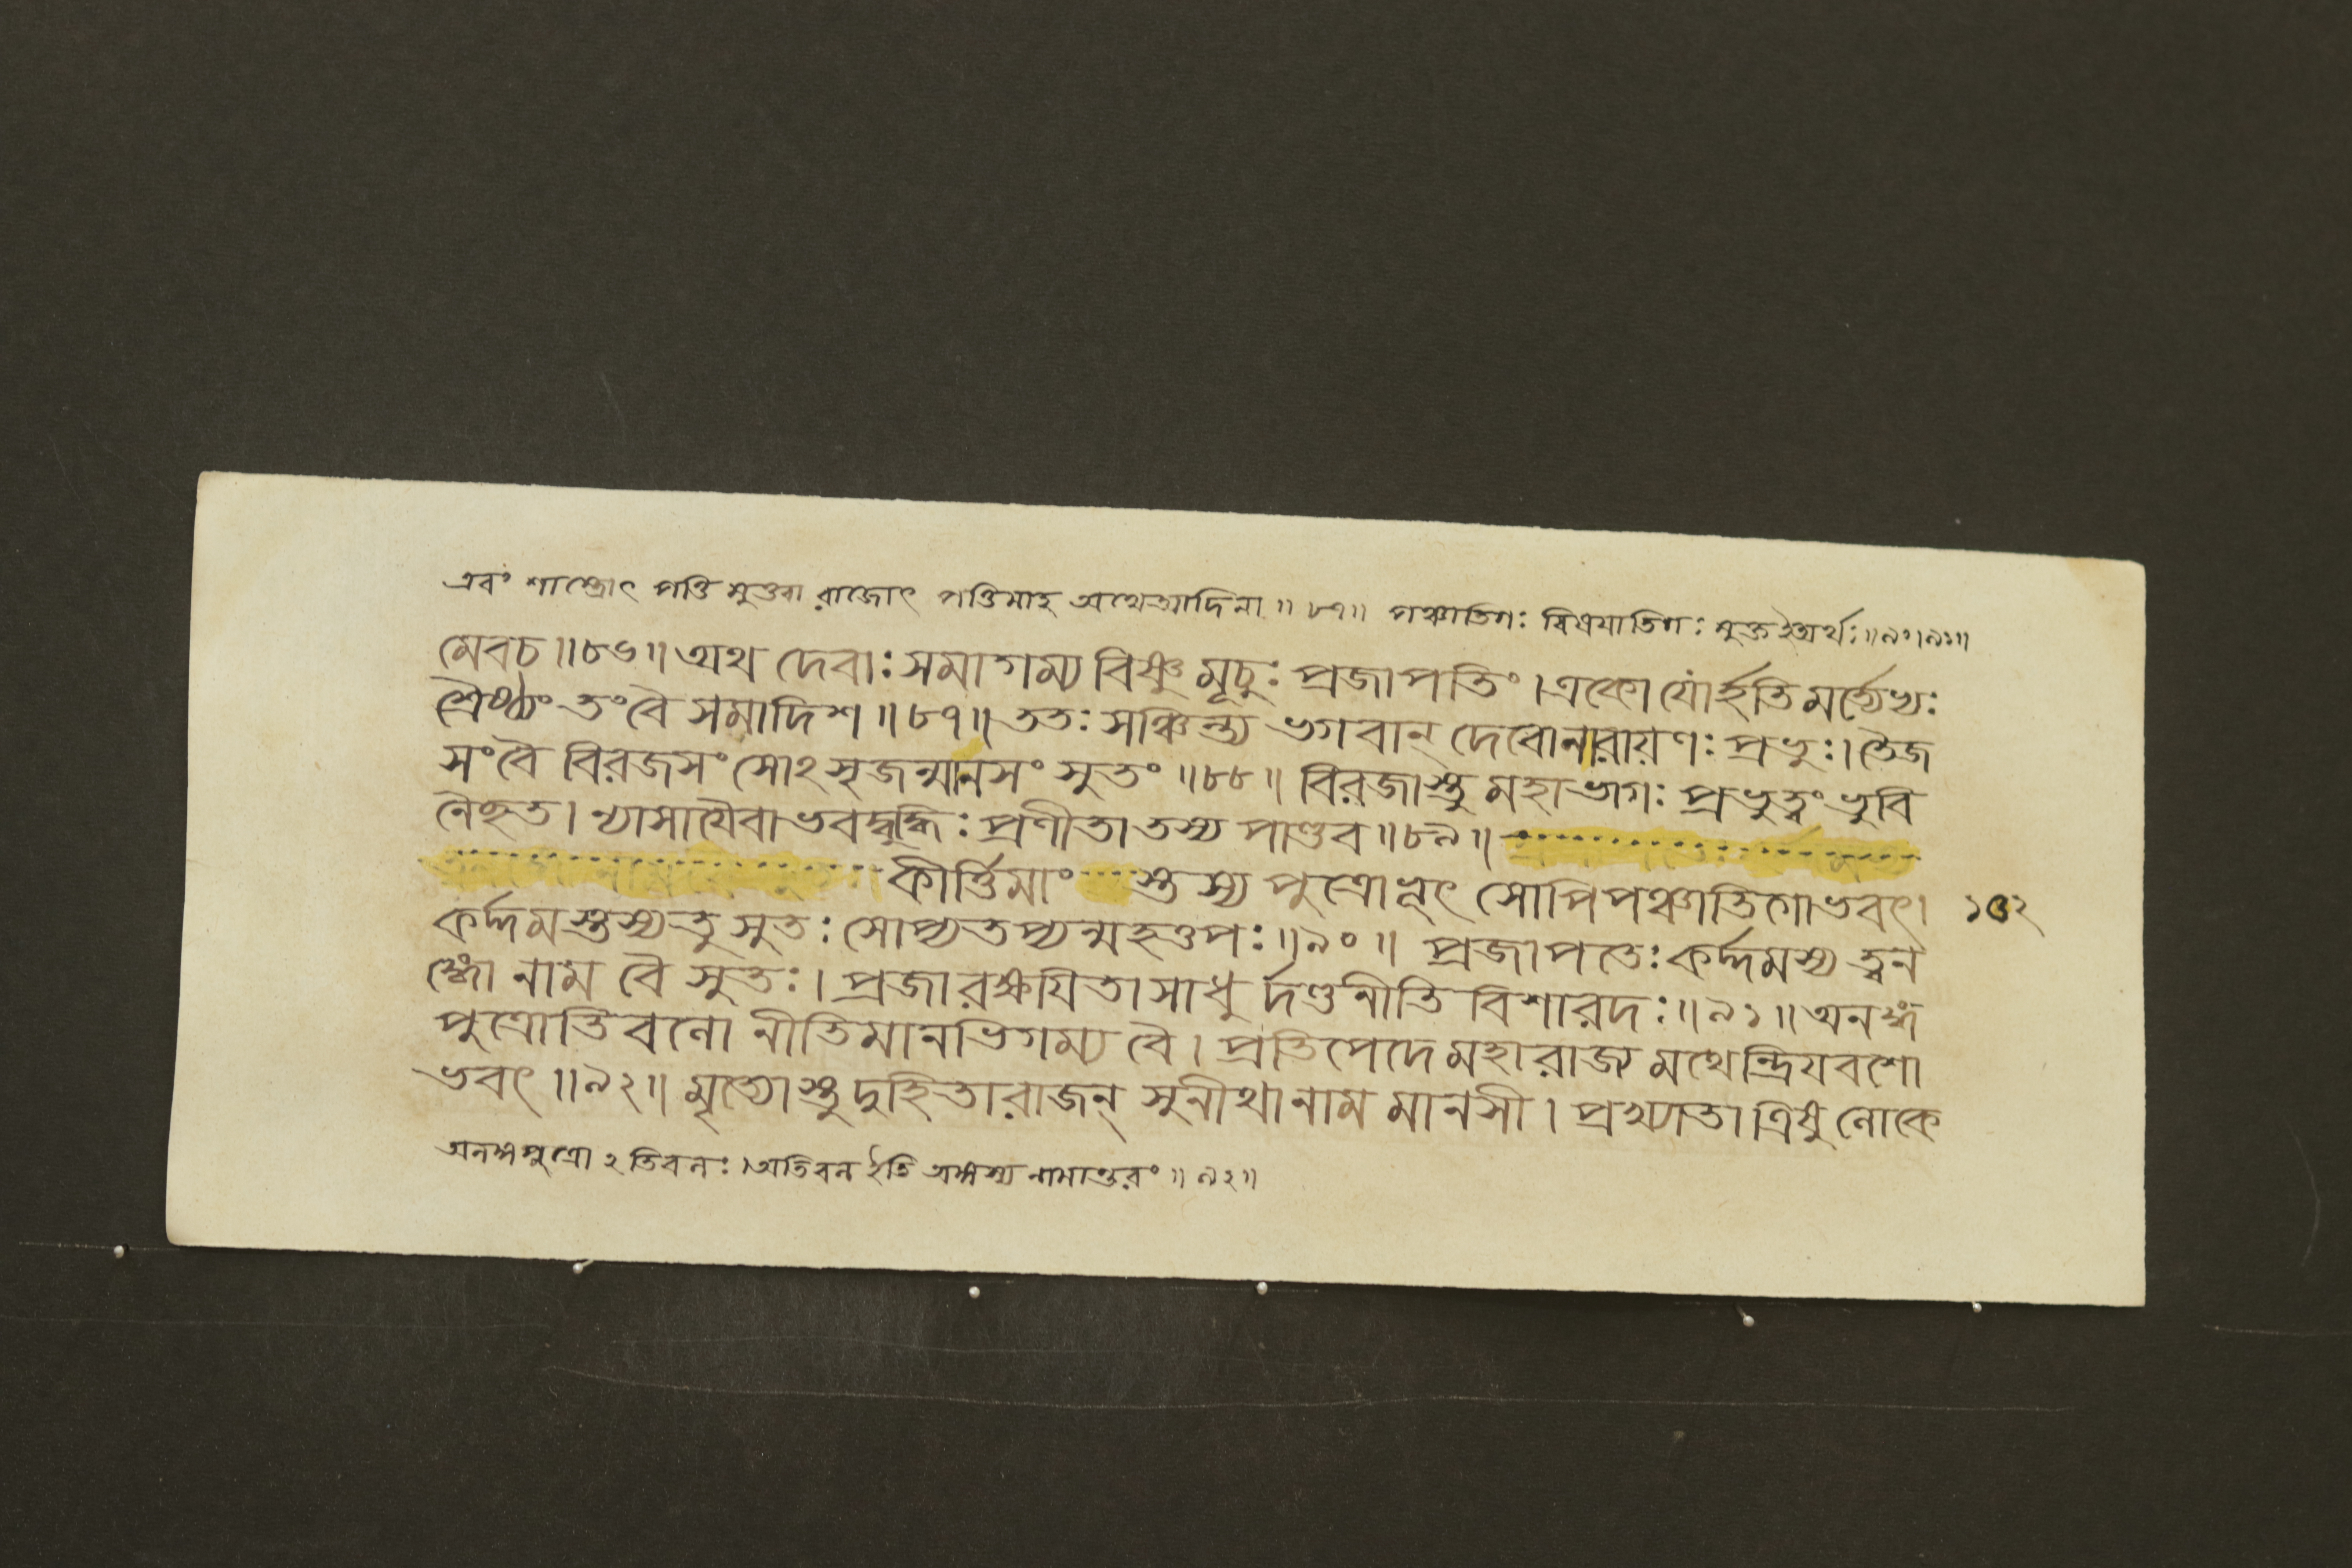 এবং শাস্ত্রোৎ পত্তি মুক্তবা রাজোৎ পত্তিমাহ অথেত্যাদিনা ॥ ৮৭॥ পঞ্চাতিগঃ বিষযাতিগঃ মুক্ত ইত্যর্থঃ॥৯০।৯১॥
মেবচ॥৮৬॥ অথ দেবাঃ সমাগম্য বিষ্ণু মূচুঃ প্রজাপতিং। একো যোর্হতি মর্ত্যেভ্যঃ
শ্রৈষ্ঠ্যং তংবৈ সমাদিশ॥৮৭॥ ততঃ সঞ্চিন্ত্য ভগবান্ দেবোনারায়ণঃ প্রভুঃ। তৈজ
সংবৈ বিরজসং সোঽসৃজন্মানসং সুতং॥৮৮॥ বিরজাস্তু মহাভাগঃ প্রভুত্বং ভুবি
নৈচ্ছত। ন্যাসাযৈবাভবদ্বুদ্ধিঃ প্রণীতা তস্য পাণ্ডব॥৮৯॥
কীর্ত্তিমাং স্তস্য পুত্রোভূৎ সোপিপঞ্চাতিগোভবৎ। ১৫২
কর্দ্দমস্তস্যতু সুতঃ সোপ্যতপ্যন্মহত্তপঃ॥৯০॥ প্রজাপতেঃ কর্দ্দমস্য ত্বন
ঙ্গো নাম বৈ সুতঃ। প্রজারঞ্চযিতা সাধু র্দণ্ডনীতি বিশারদঃ॥৯১॥ অনঙ্গ
পুত্রোতিবলো নীতিমানভিগম্য বৈ। প্রতিপেদে মহারাজ্য মথেন্দ্রিযবশো
ভবৎ॥৯২॥ মৃত্যোস্তু দুহিতারাজন্ সুনীথানাম মানসী। প্রখ্যাতা ত্রিষু লোকে
অনঙ্গপুত্রো ঽতিবলঃ। অতিবল ইতি অঙ্গস্য নামান্তরং॥ ৯২॥